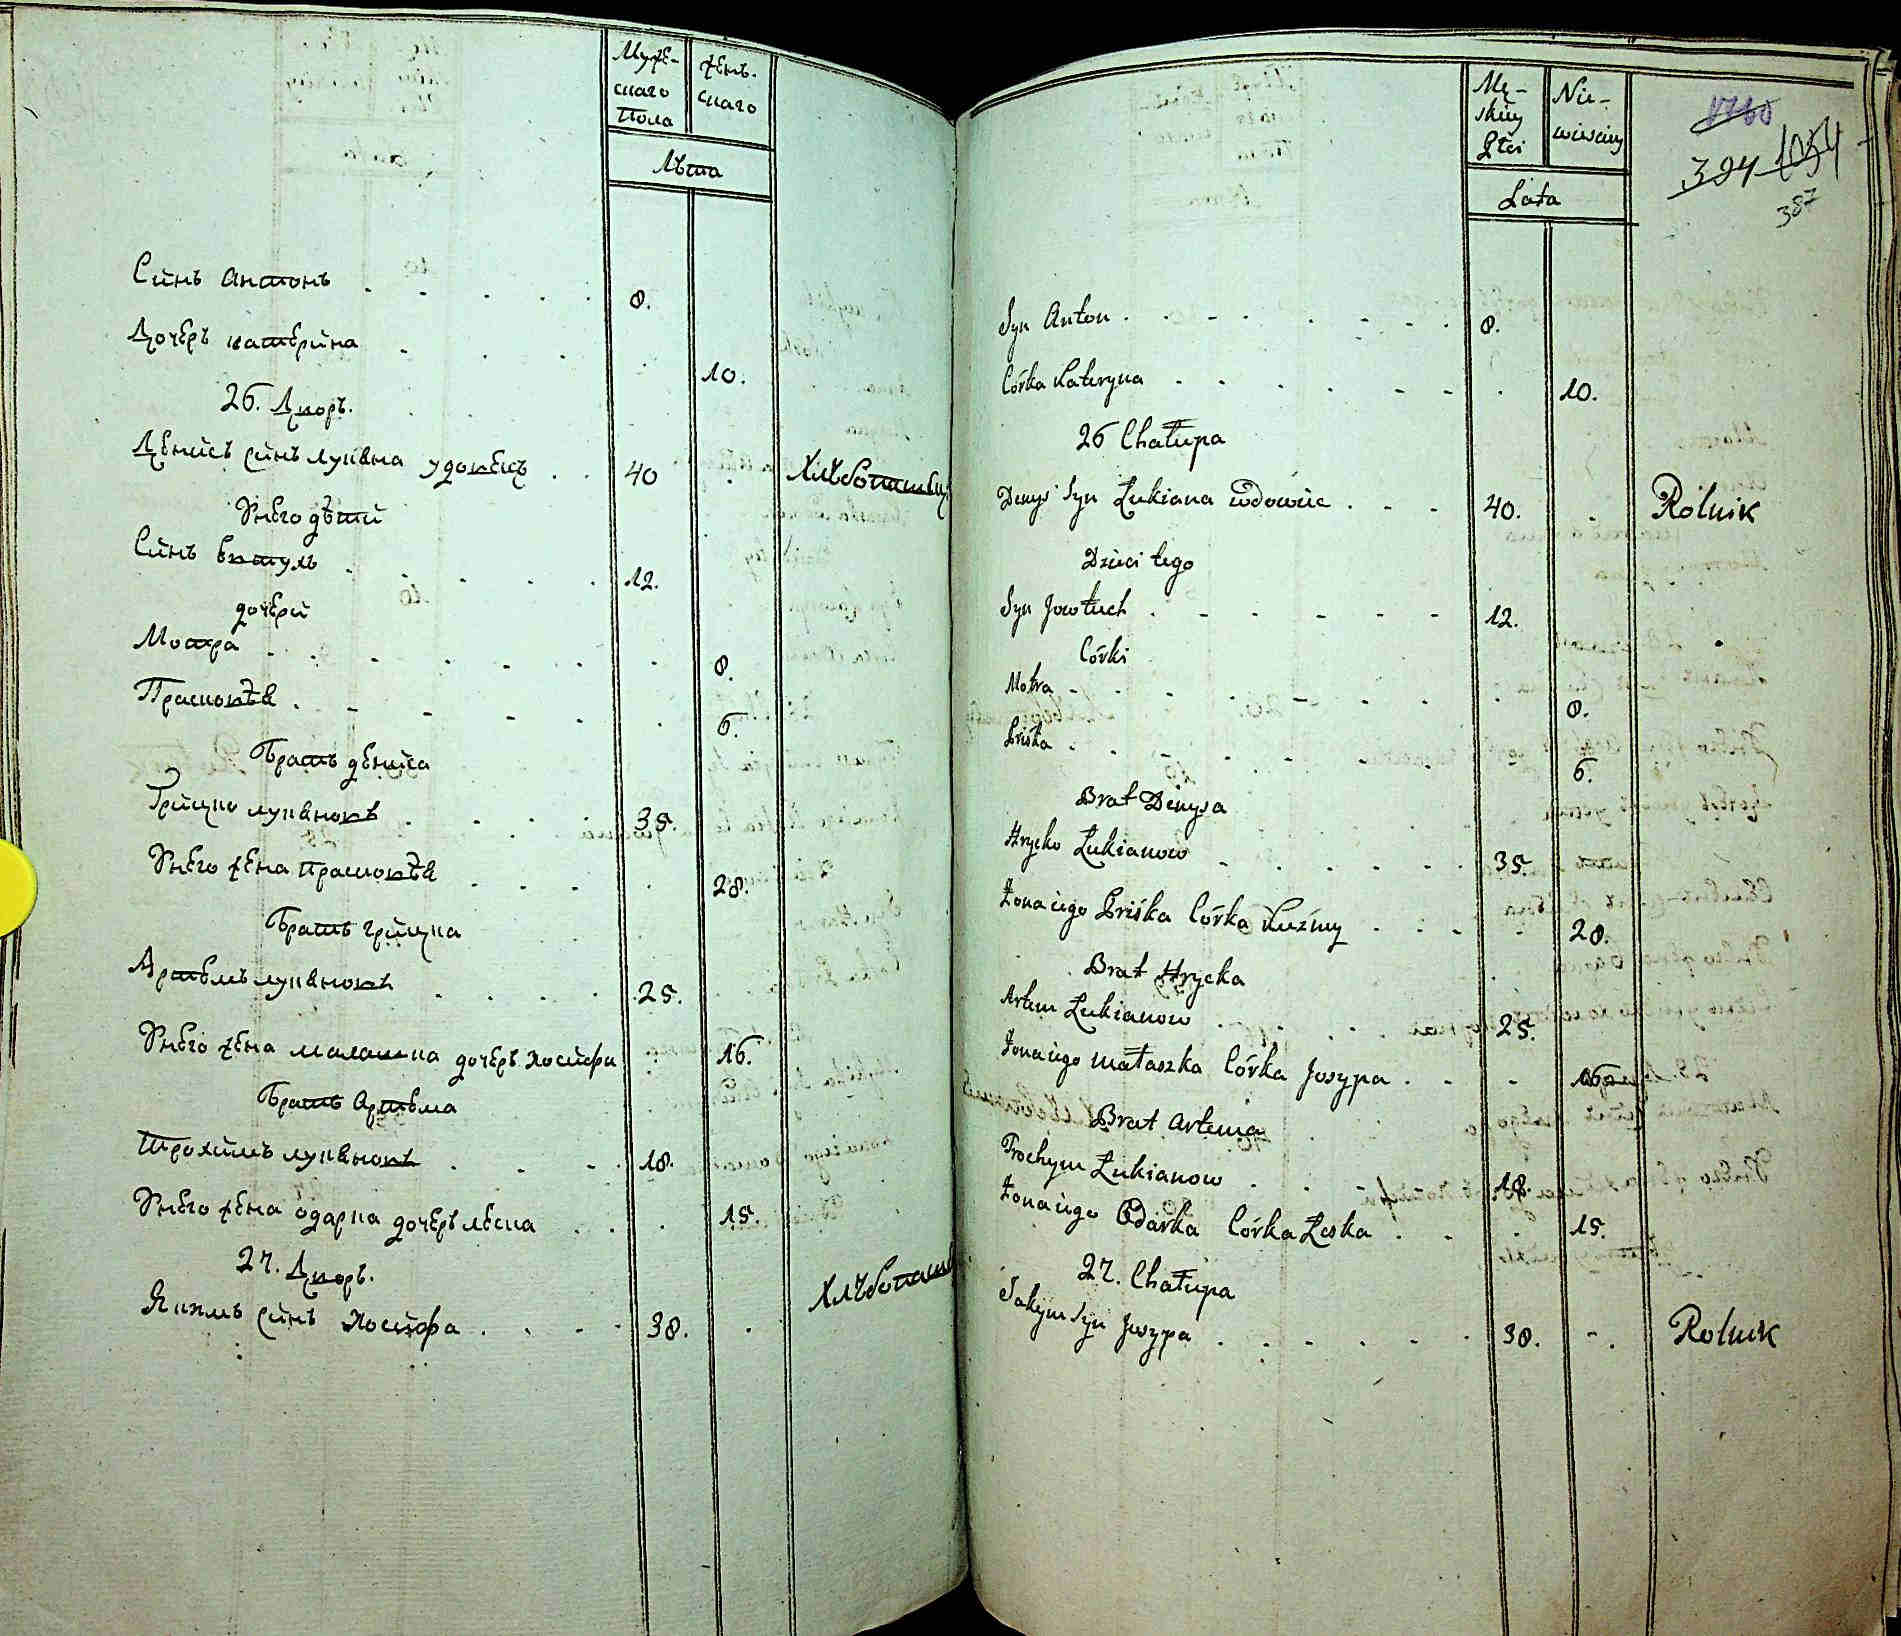 Муже-
скаго
Пола
жень-
скаго
Лѣта
Синъ Антонъ . . . . . 8.
Дочерь катерина . . . . 10.
26. Дворъ.
Денисъ синъ лукяна удовецъ . . 40 . Хлѣбопашецъ
У него дѣти
Синъ Евтухъ . . . . . 12.
дочери
Мотра . . . . . . 8.
Прасковѣя . . . . . 6.
Братъ дениса
Грицко лукяновъ . . . . 35.
У него жена Прасковѣя . . . . 28.
Братъ грицка
Артемъ лукяновъ . . . . 25.
У него жена малашка дочерь Иосифа . 16.
Братъ Артема
Трохимъ лукяновъ . . . 18.
У него жена одарка дочерь леска . . 15.
27. Дворъ. Хлѣбопаше
Якимъ синъ Иосифа . . . . 38. .
Mę-
skiey
Płci
Nie-
wiesciey
Lata
1760
394 1054
387
Syn Anton . . . . . . . 8.
Córka Kateryna . . . . . . . 10.
26 Chałupa
Denys Syn Łukiana wdowiec . . . 40. . Rolnik
Dzieci tego
Syn Jowtuch . . . . . . 12.
Córki
Motra . . . . . . . 8.
Priśka . . . . . . . 6.
Brat Denysa
Hrycko Łukianow . . . . . 35.
Żona iego Priśka Córka Kuźmy . . . . 28.
Brat Hrycka
Artem Łukianow . . . . 25.
Żona iego Małaszka Córka Josypa . . . 16
Brat Artema
Trochym Łukianow . . . 18.
Żona iego Odarka Córka Leska . . . 15.
27. Chałupa
Jakym Syn Josypa . . . . . . 38. - . Rolnik